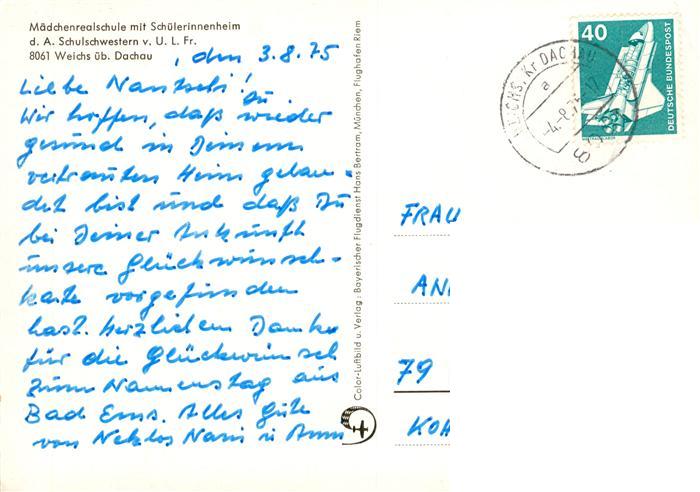 Mädchenrealschule mit Schülerinnenheim
d. A. Schulschwestern v. U. L. Fr.
8061 Weichs üb. Dachau
, den 3.8.75
Liebe
Wir hoffen, daß Du wieder
gesund in Deinem
vertrauten Heim gelan-
det bist und daß Du
bei Deiner Ankunft
unsere Glückwunsch-
karte vorgefunden
hast. Herzlichen Danke
für die Glückwünsch
zum Namenstag aus
Bad Ems. Alles Gute
von
Color-Luftbild u. Verlag: Bayerischer Flugdienst Hans Bertram, München, Flughafen Riem
40
DEUTSCHE BUNDESPOST
WEICHS, Kr DACHAU
a
-4.-8.75
8061
FRAU
AN
79
KOH